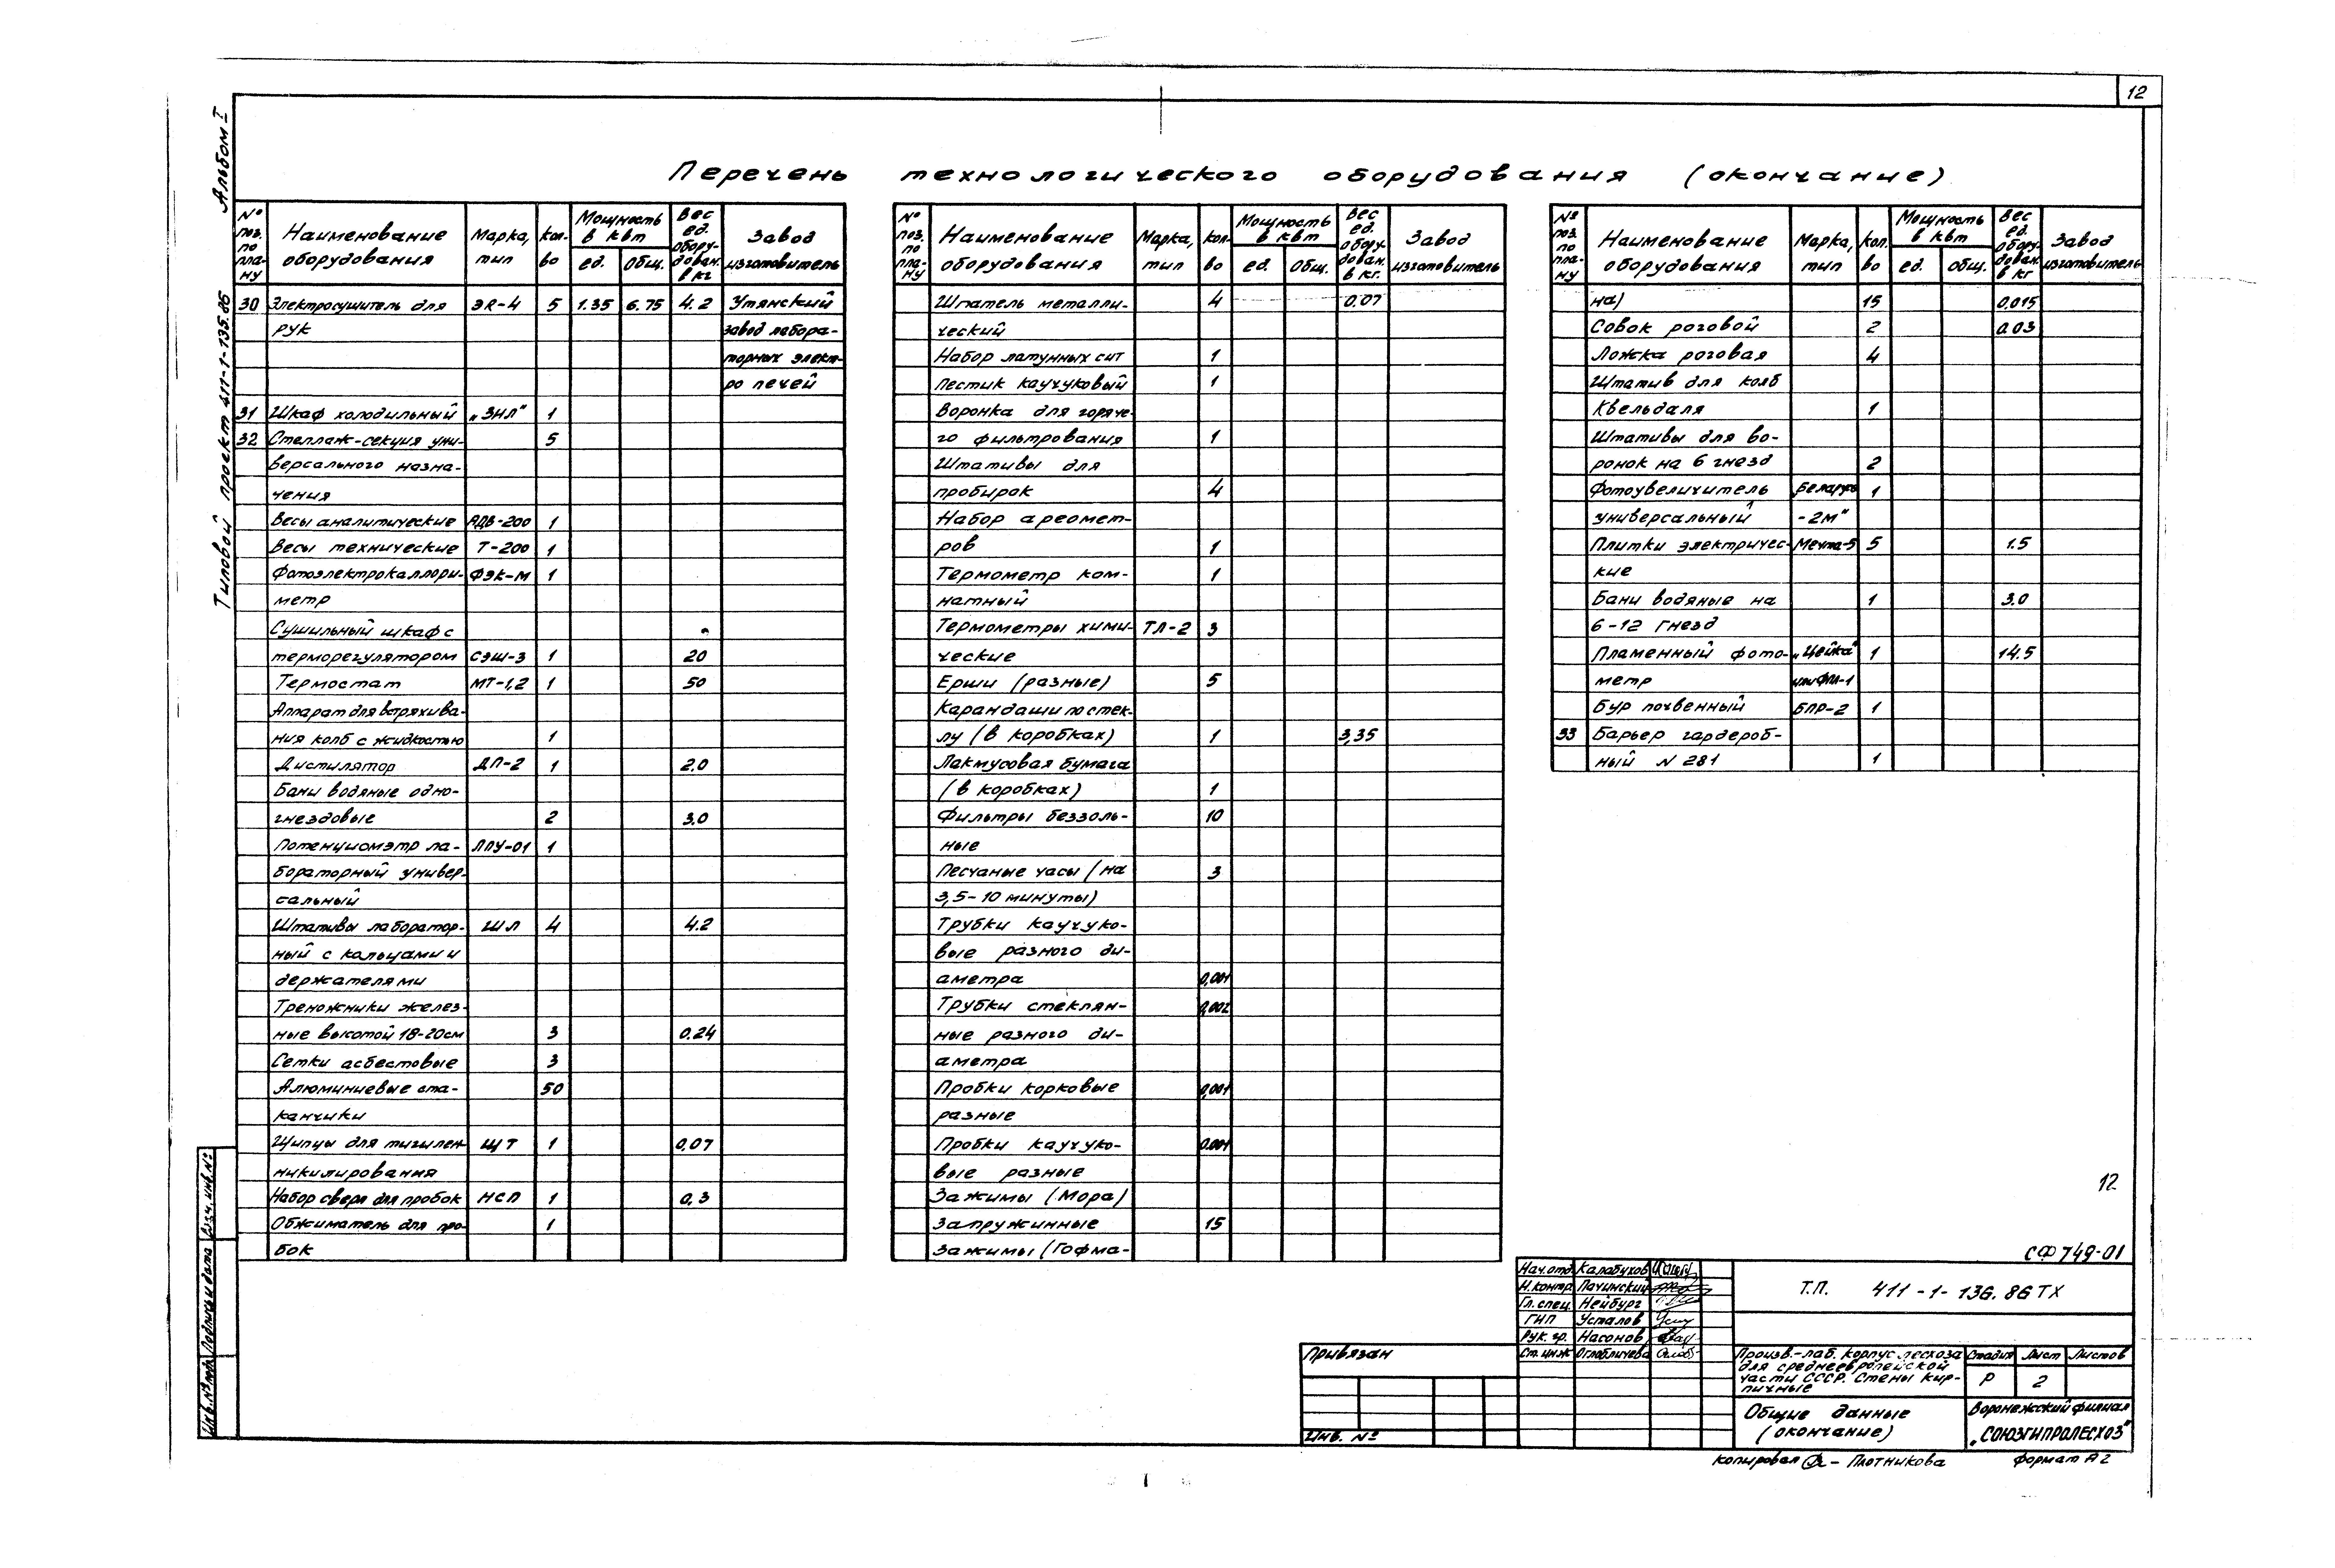 12
Альбом I
Типовой проект 411-1-135.86
Перечень технологического оборудования (окончание)
№ поз. по плану | Наименование оборудования | Марка, тип | Кол-во | Мощность в квт ед. общ. | Вес ед. оборудован. в кг | Завод изготовитель
30 Электросушитель для ЭК-4 5 1.35 6.75 4.2 Утянский
рук завод лабора-
торных элект-
ро печей
31 Шкаф холодильный „ЗИЛ" 1
32 Стеллаж-секция уни- 5
версального назна-
чения
Весы аналитические АДВ-200 1
Весы технические Т-200 1
Фотоэлектрокаллори- ФЭК-М 1
метр
Сушильный шкаф с
терморегулятором СЭШ-3 1 20
Термостат МТ-1,2 1 50
Аппарат для встряхива-
ния колб с жидкостью 1
Дистилятор ДП-2 1 2.0
Бани водяные одно-
гнездовые 2 3.0
Потенциомэтр ла- ЛПУ-01 1
бораторный универ-
сальный
Штативы лаборатор- ШЛ 4 4.2
ный с кольцами и
держателями
Треножники желез-
ные высотой 18-20см 3 0.24
Сетки асбестовые 3
Алюминиевые ста- 50
канчики
Щипцы для тигилен ЩТ 1 0,07
никилирования
Набор сверл для пробок НСП 1 0,3
Обжиматель для про- 1
бок
№ поз. по плану | Наименование оборудования | Марка, тип | Кол-во | Мощность в квт ед. общ. | Вес ед. оборудован. в кг. | Завод изготовитель
Шпатель металли- 4 0.07
ческий
Набор латунных сит 1
Пестик каучуковый 1
Воронка для горяче-
го фильтрования 1
Штативы для
пробирок 4
Набор ареомет-
ров 1
Термометр ком- 1
натный
Термометры хими- ТЛ-2 3
ческие
Ерши (разные) 5
Карандаши по стек-
лу (в коробках) 1 3,35
Лакмусовая бумага
(в коробках) 1
Фильтры беззоль- 10
ные
Песчаные часы (на 3
3,5-10 минуты)
Трубки каучуко-
вые разного ди-
аметра 0,001
Трубки стеклян- 0,002
ные разного ди-
аметра
Пробки корковые 0,001
разные
Пробки каучуко- 0.001
вые разные
Зажимы (Мора)
Запружинные 15
Зажимы (Гофма-
№ поз. по плану | Наименование оборудования | Марка, тип | Кол. во | Мощность в квт ед. общ. | Вес ед. оборудован. в кг | Завод изготовитель
на) 15 0,015
Совок роговой 2 0.03
Ложка роговая 4
Штатив для колб
Квельдаля 1
Штативы для во-
ронок на 6 гнезд 2
Фотоувеличитель „Беларусь 1
универсальный -2М"
Плитки электричес- Мечта-5 5 1.5
кие
Бани водяные на 1 3.0
6-12 гнезд
Пламенный фото- „Цейса" 1 14.5
метр или ФПЛ-1
Бур почвенный БПР-2 1
33 Барьер гардероб-
ный N 281 1
12
СФ 749-01
Нач.отд. Калабухов
Н.контр. Пачинский
Гл.спец. Нейбург
ГИП Усталов
Рук. гр. Насонов
Ст.инж. Оглобличева
Т.П. 411-1-136.86 ТХ
Произв.-лаб. корпус лесхоза
для среднеевропейской
части СССР. Стены кир-
пичные
Стадия Лист Листов
Р 2
Общие данные
(окончание)
Воронежский филиал
„СОЮЗГИПРОЛЕСХОЗ"
Привязан
Инв. №
Копировал Плотникова Формат А2
Взам. инв. №
Подпись и дата
Инв. № подл.